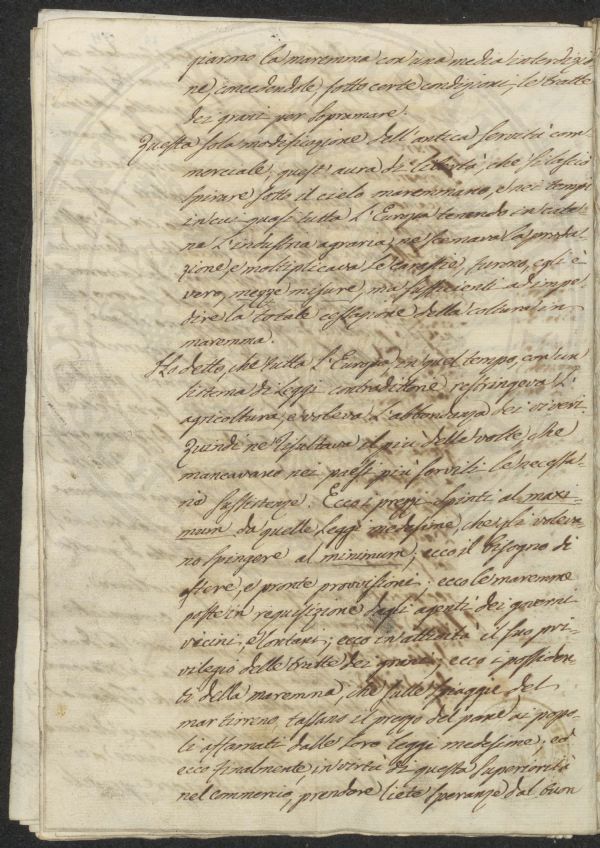 la maremma con una media interdizio
ne concedendole, sotto certe condizioni, le tratte
dei grani per sopramare.
Questa sola modificazione dell'antica servitù com
merciale, quest'aura di libertà, che si lasciò
spirare sotto il cielo maremmano, e nei tempi
in cui quasi tutta l'Europa tenendo in cate
na l'industria agraria, ne scemava la produ
zione, e moltiplicava le carestie, furono, egli è
vero, mezze misure, ma sufficienti ad impe
dire la totale cessazione della coltura in
maremma.
Ho detto, che tutta l'Europa, in quel tempo, con un
sistema di leggi contradittorie restringeva l'
agricoltura, e voleva l'abbondanza dei viveri.
Quindi ne resultava il più delle volte, che
mancavano nei paesi più servili le necessa
rie sussistenze. Ecco i prezzi spinti al maxi-
mum da quelle leggi medesime, che li voleva
no spingere al minimum; ecco il bisogno di
estere, e pronte provvisioni; ecco le maremme
poste in requisizione dagli agenti dei governi
vicini, e lontani; ecco in attività il suo pri-
vilegio delle tratte dei grani; ecco i possiden
ti della maremma, che sulle spiagge del
mar tirreno, tassano il prezzo del pane ai popo-
li affamati dalle loro leggi medesime, ed
ecco finalmente, in virtù di questa superiorità
nel commercio, prendere liete speranze dal buon